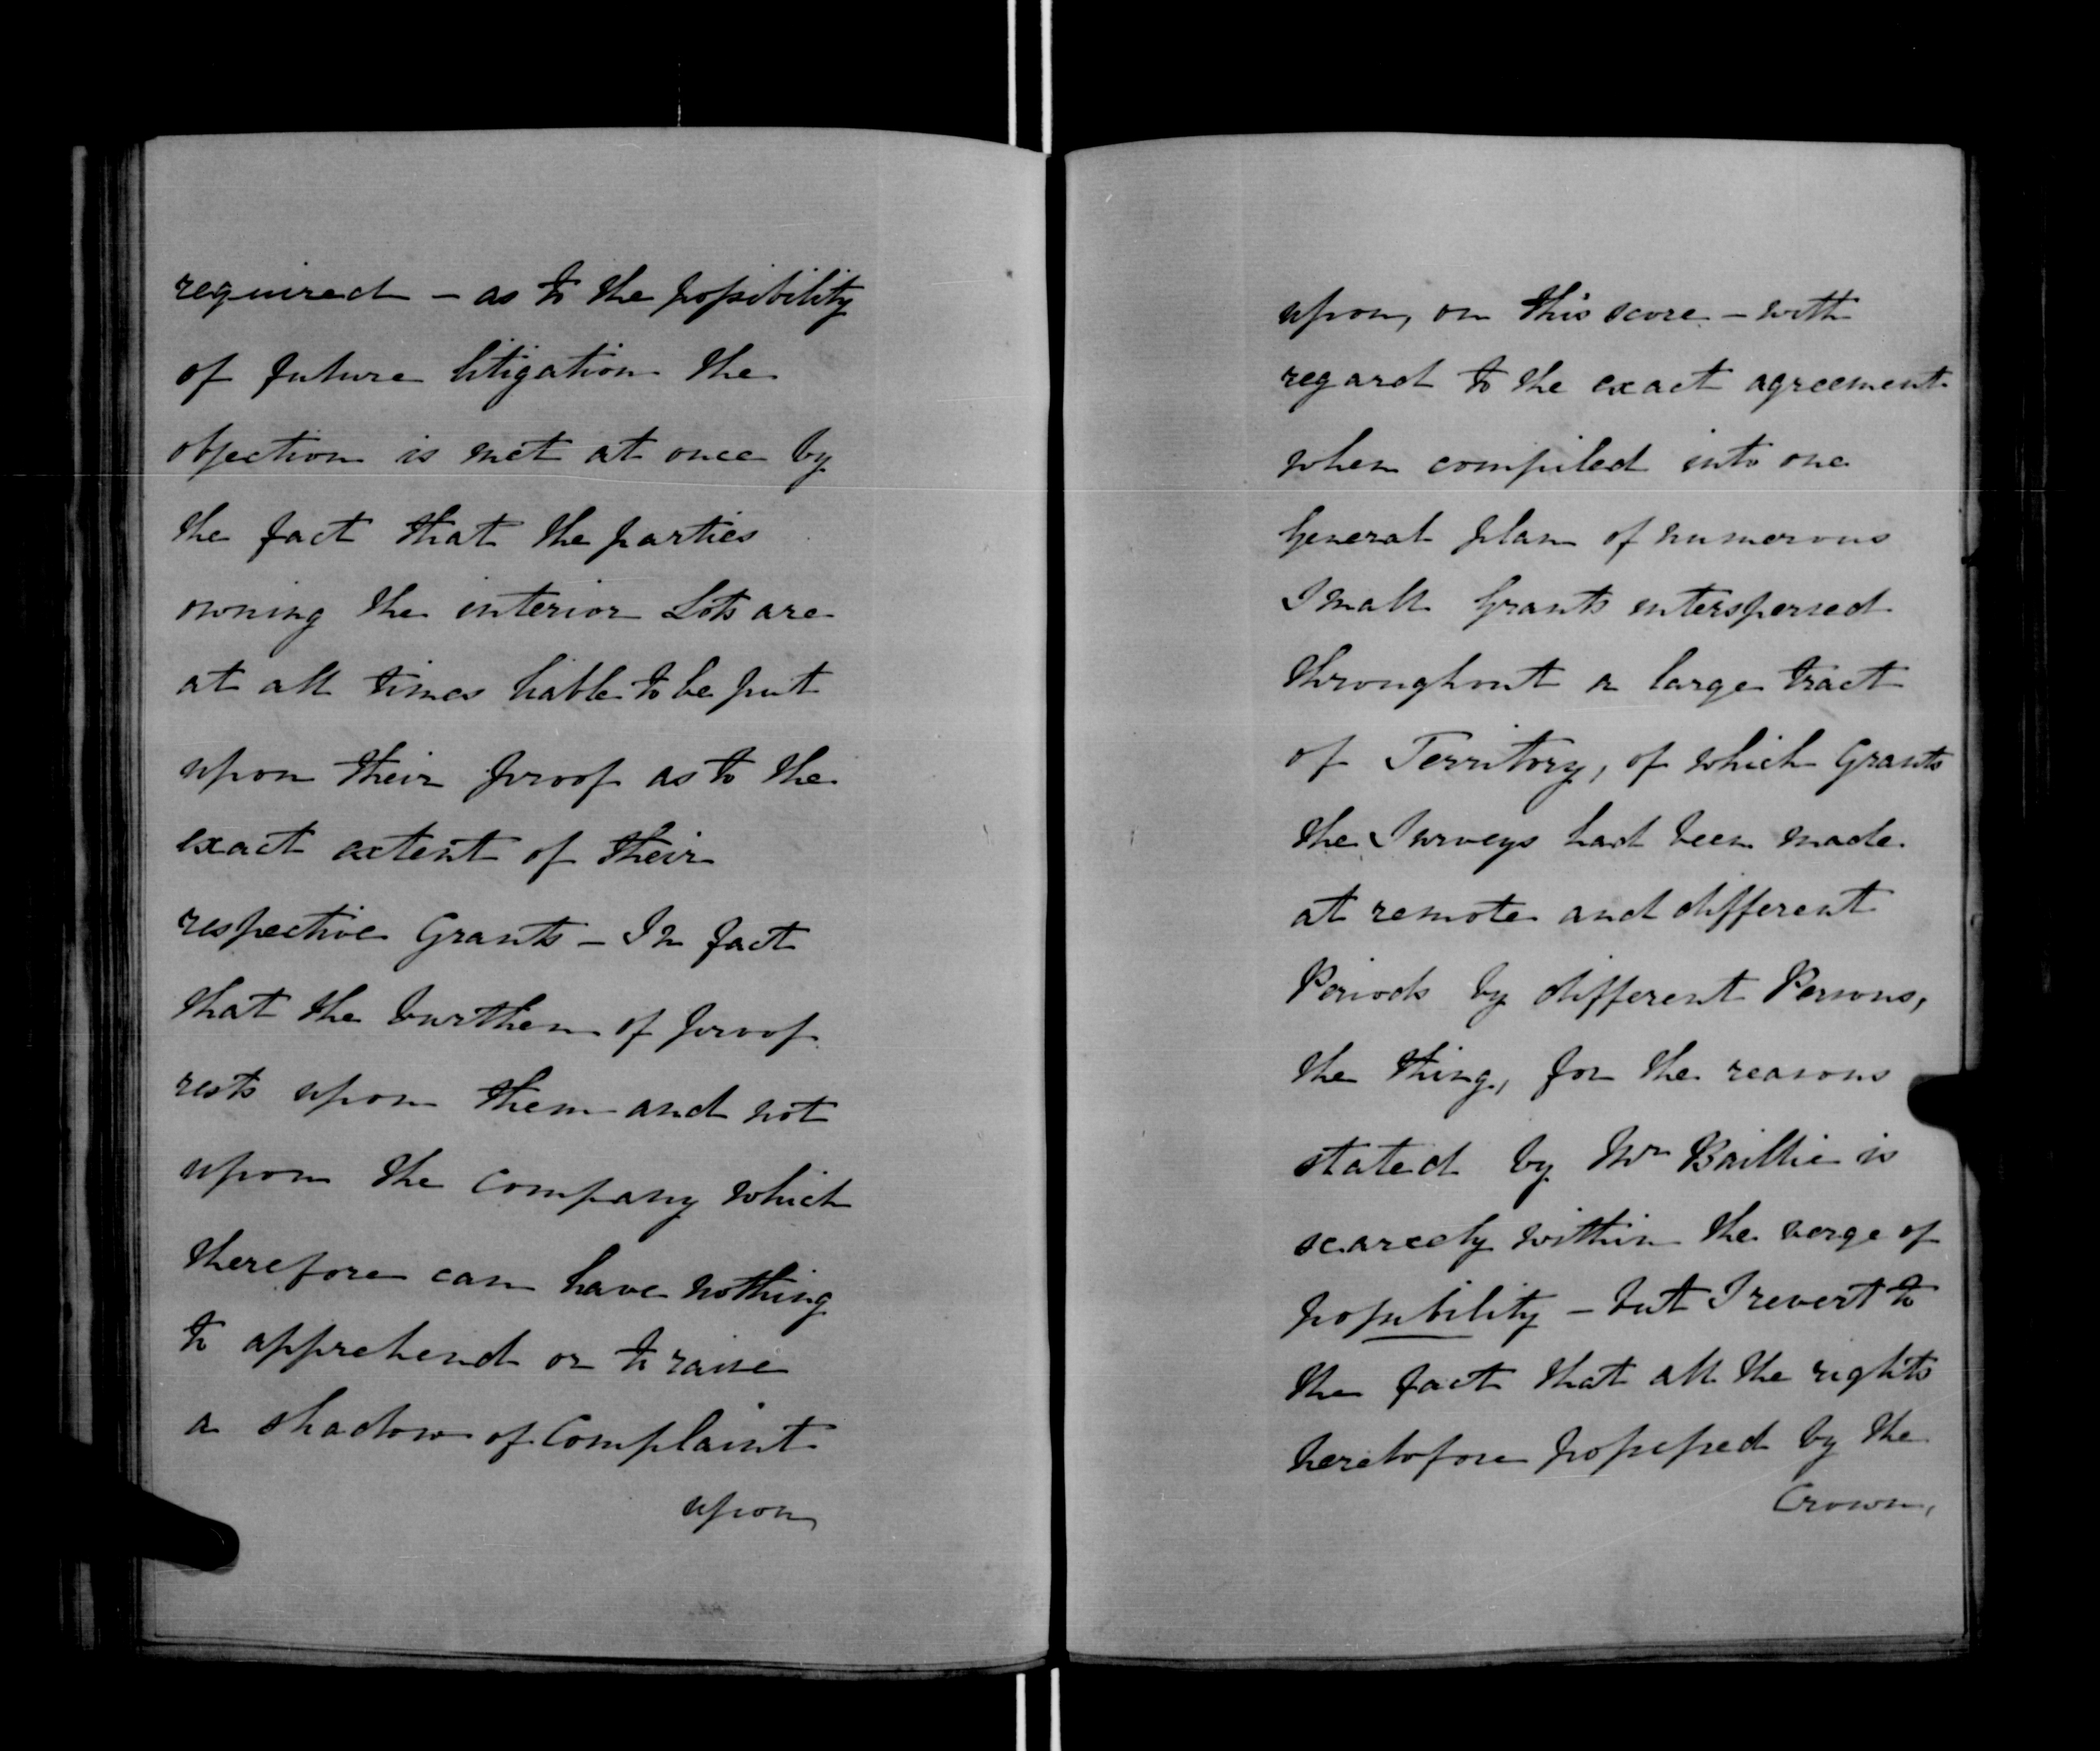 required - as to the possibility
of future litigation the
objection is met at once by
the fact that the parties
owning the interior Lots are
at all times liable to be put
upon their proof as to the
exact extent of their
respective Grants - In fact
that the burthen of proof
rests upon them and not
upon the Company which
therefore can have nothing
to apprehend or to raise
a shadow of Complaint
upon,
upon, on this score - with
regard to the exact agreement
when compiled into one
General plan of numerous
Small Grants interspersed
throughout a large tract
of Territory, of which Grants
the Surveys had been made
at remote and different
Periods by different Persons,
the thing, for the reasons
stated by Mr Baillie is
scarcely within the verge of
possibility - but I revert to
the fact that all the rights
heretofore possessed by the
Crown,